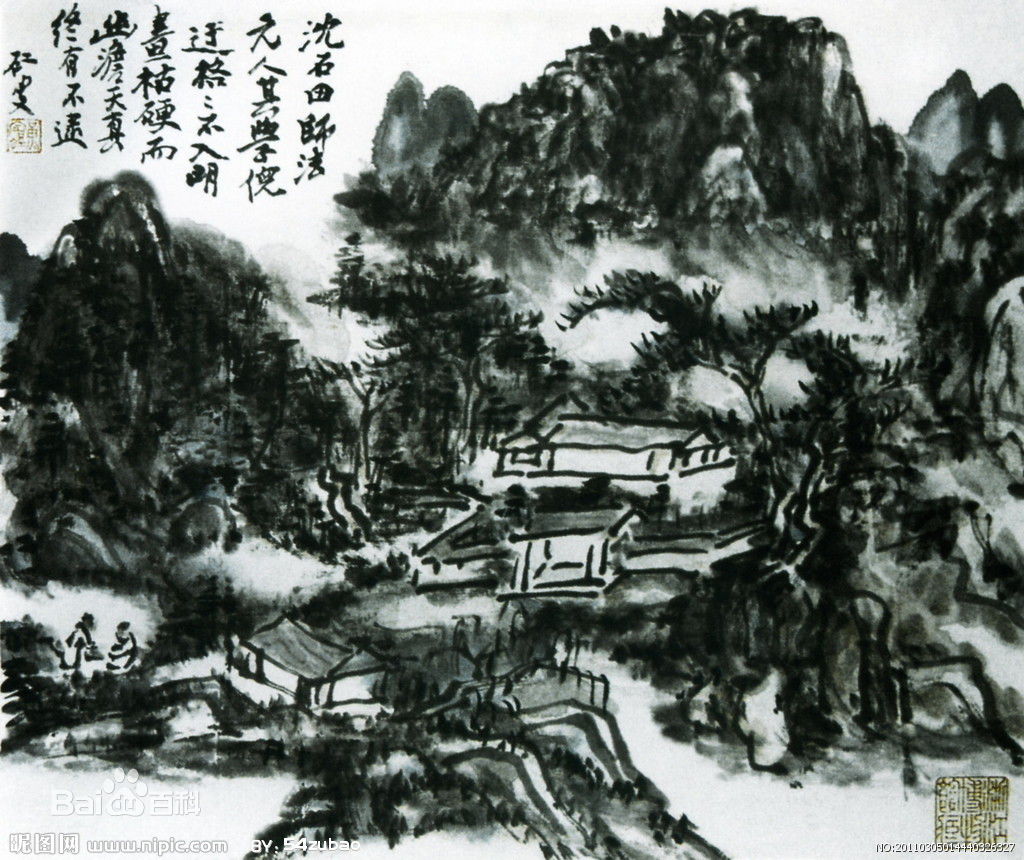 沈石田師法
元人其學倪
迂格格不入明
畫枯硬而
幽澹天真
終有不逮
虹叟
Bai百科
昵图网 www.nipic.com
BY: 54zubao
NO:20110305014440326327